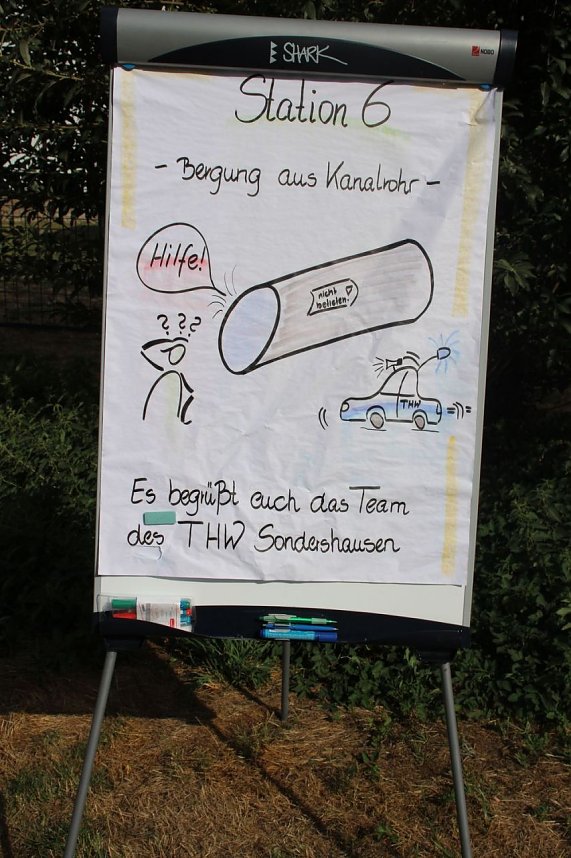 SHARK
NOBO
Station 6
- Bergung aus Kanalrohr -
Hilfe!
nicht
betreten.
? ? ?
THW
Es begrüßt euch das Team
des THW Sondershausen